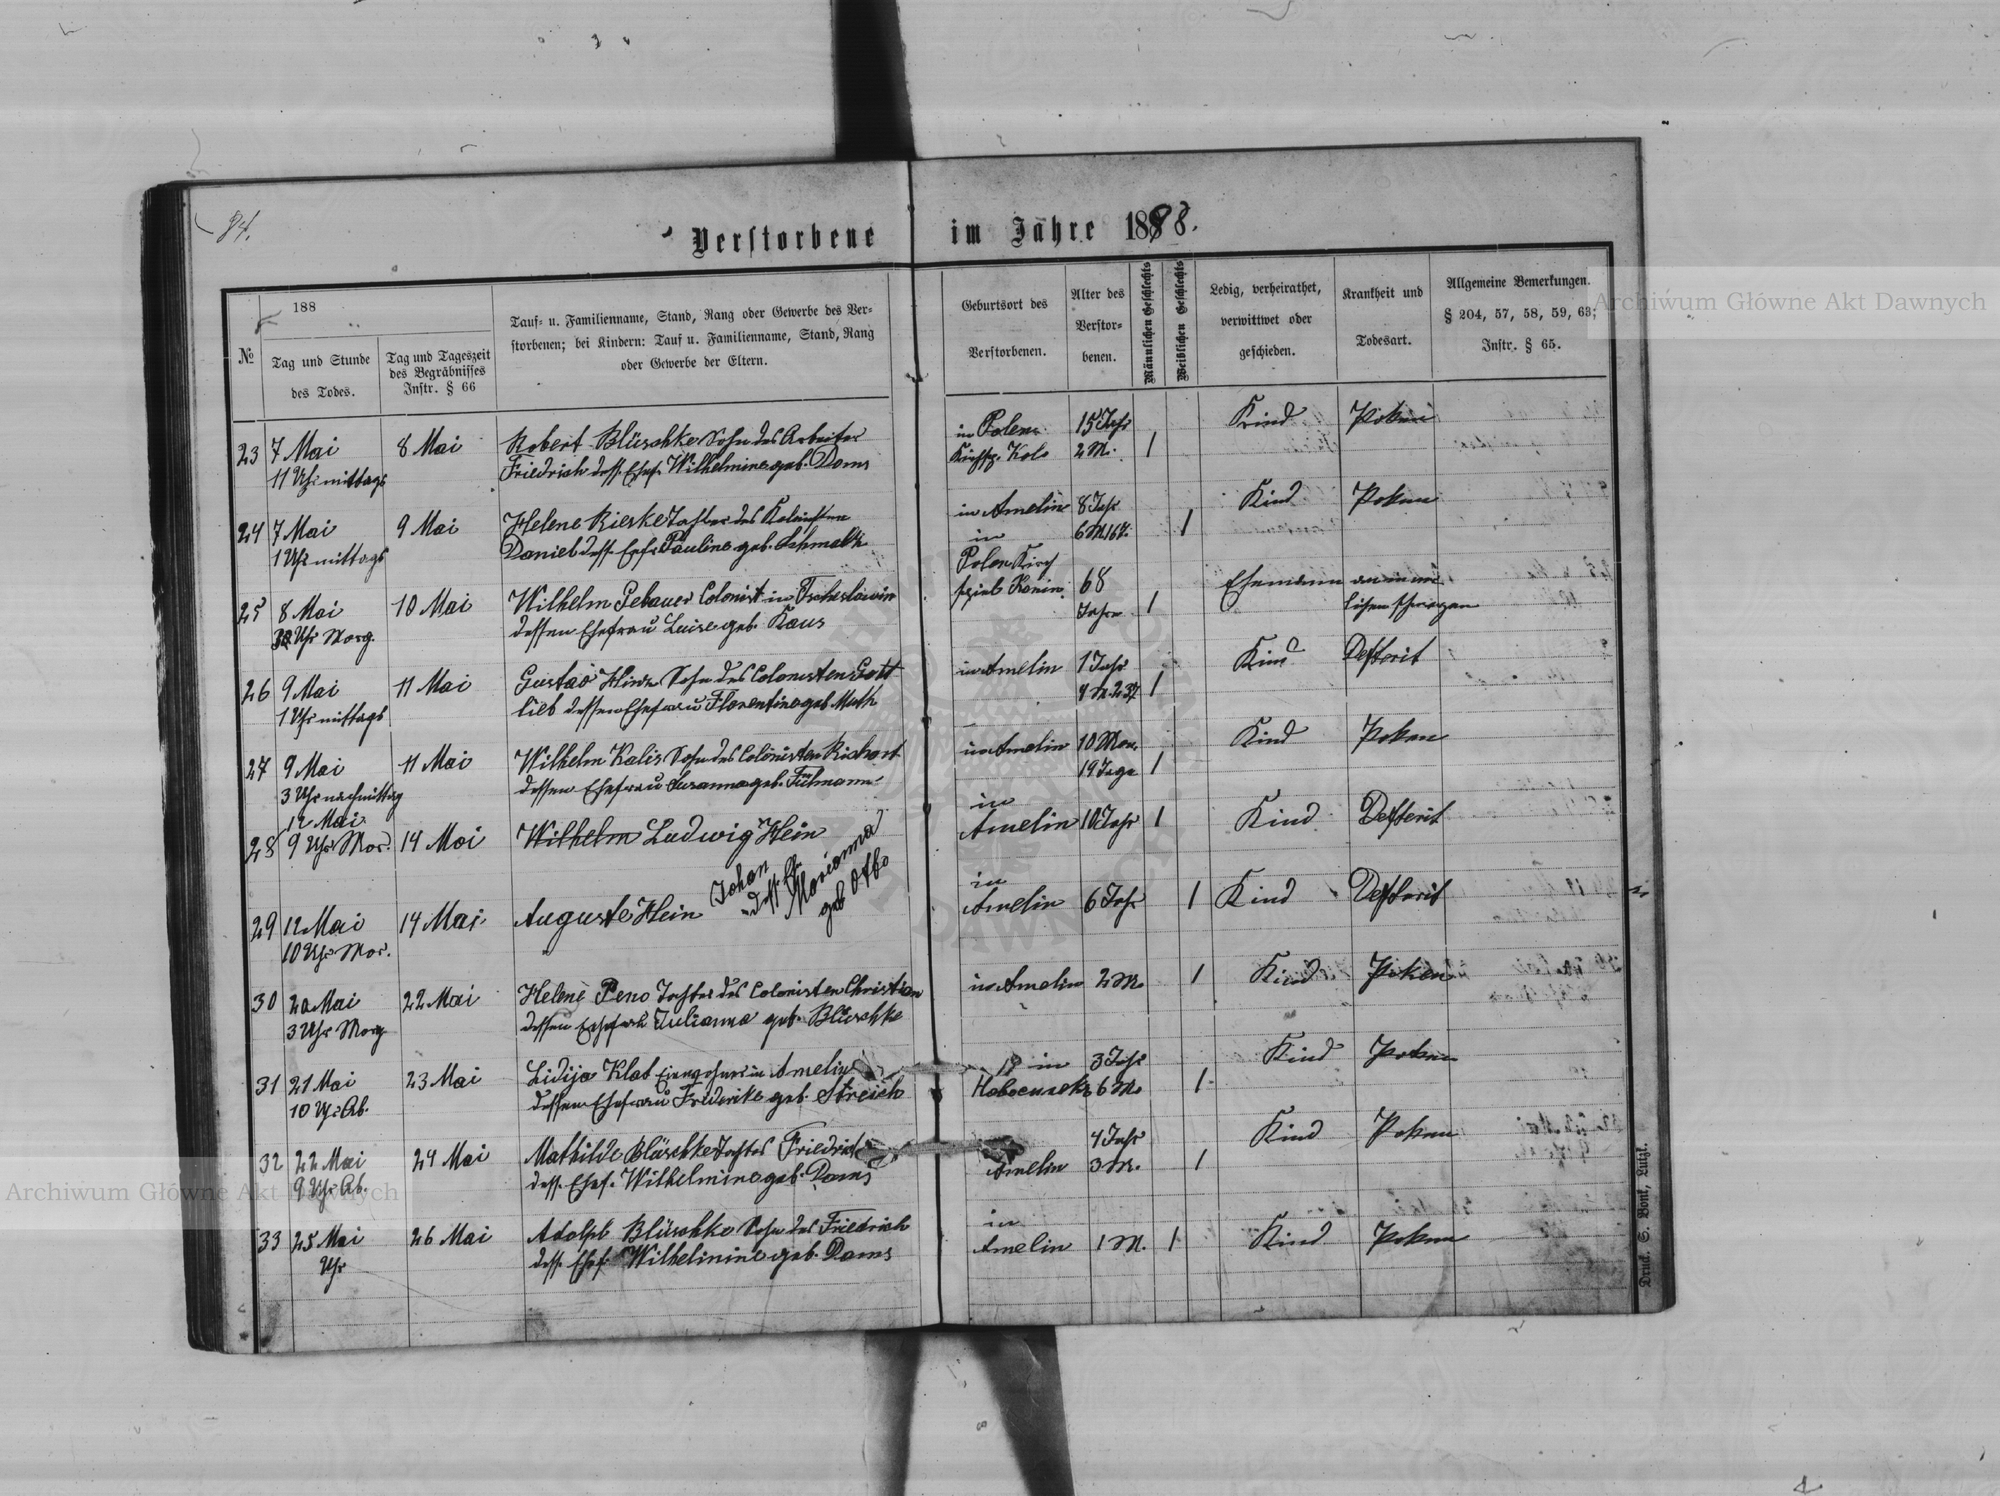 84.
Verstorbene im Jahre 1888.
№
188
Tag und Stunde
des Todes.
Tag und Tageszeit
des Begräbnisses
Instr. § 66
Tauf- u. Familienname, Stand, Rang oder Gewerbe des Ver-
storbenen; bei Kindern: Tauf u. Familienname, Stand, Rang
oder Gewerbe der Eltern.
Geburtsort des
Verstorbenen.
Alter des
Verstor-
benen.
Männlichen Geschlechts
Weiblichen Geschlechts
Ledig, verheirathet,
verwittwet oder
geschieden.
Krankheit und
Todesart.
Allgemeine Bemerkungen.
§ 204, 57, 58, 59, 63;
Instr. § 65.
Archiwum Główne Akt Dawnych
23 7 Mai 8 Mai Robert Blüschke Sohn des Arbeiter in Polen 15 Jahr Kind Poken
11 Uhr mittags Friedrich dess. Ehef. Wilhelmine geb. Doms Kirchsp. Kolo 2 M. 1
24 7 Mai 9 Mai Helene Rieske Tochter des Kolonisten in Amelin 8 Jahr Kind Poken
1 Uhr mittags Daniel dess. Ehefr. Pauline geb. 1
25 8 Mai 10 Mai Wilhelm Gebauer Colonist in in Polen Kirch 68 Ehemann
Uhr Morg. dessen Ehefrau Luise geb. Kaus spiel Konin. Jahre 1
26 9 Mai 11 Mai Gustav Sohn des Colonisten Gott in Amelin 1 Jahr Kind Defterit
1 Uhr mittags lieb dessen Ehefrau Florentine geb. Muth 1
27 9 Mai 11 Mai Wilhelm Kalis Sohn des Colonisten Richart in Amelin 10 Mon. Kind Poken
3 Uhr nachmittag dessen Ehefrau Susanna geb. 19 Tage 1
12 Mai in
28 9 Uhr Mor. 14 Mai Wilhelm Ludwig Hein Amelin 10 Jahr 1 Kind Defterit
Johan
dess. Ehe.
Marianna
geb Otto
29 12 Mai 14 Mai Auguste Hein in Amelin 6 Jahr 1 Kind Defterit
10 Uhr Mor.
30 20 Mai 22 Mai Helene Peno Tochter des Colonisten Christian in Amelin 2 M. 1 Kind Poken
3 Uhr Morg dessen Ehefrau Julianna geb. Blüschke
31 21 Mai 23 Mai Lidija Klat Einwohner in Amelin in 3 Jahr Kind Poken
10 Uhr Ab. dessen Ehefrau Friderike geb. Streich 6 M. 1
32 22 Mai 24 Mai Mathilde Blüschke Tochter Friedrich 4 Jahr Kind Poken
9 Uhr Ab. dess. Ehef. Wilhelmine geb. Doms Amelin 3 M. 1
33 25 Mai 26 Mai Adolph Blüschke Sohn des Friedrich in Amelin 1 M. 1 Kind Poken
Uhr dess. Ehef. Wilhelmine geb. Doms
Druck S. Bonk, Lutzk.
Archiwum Główne Akt Dawnych